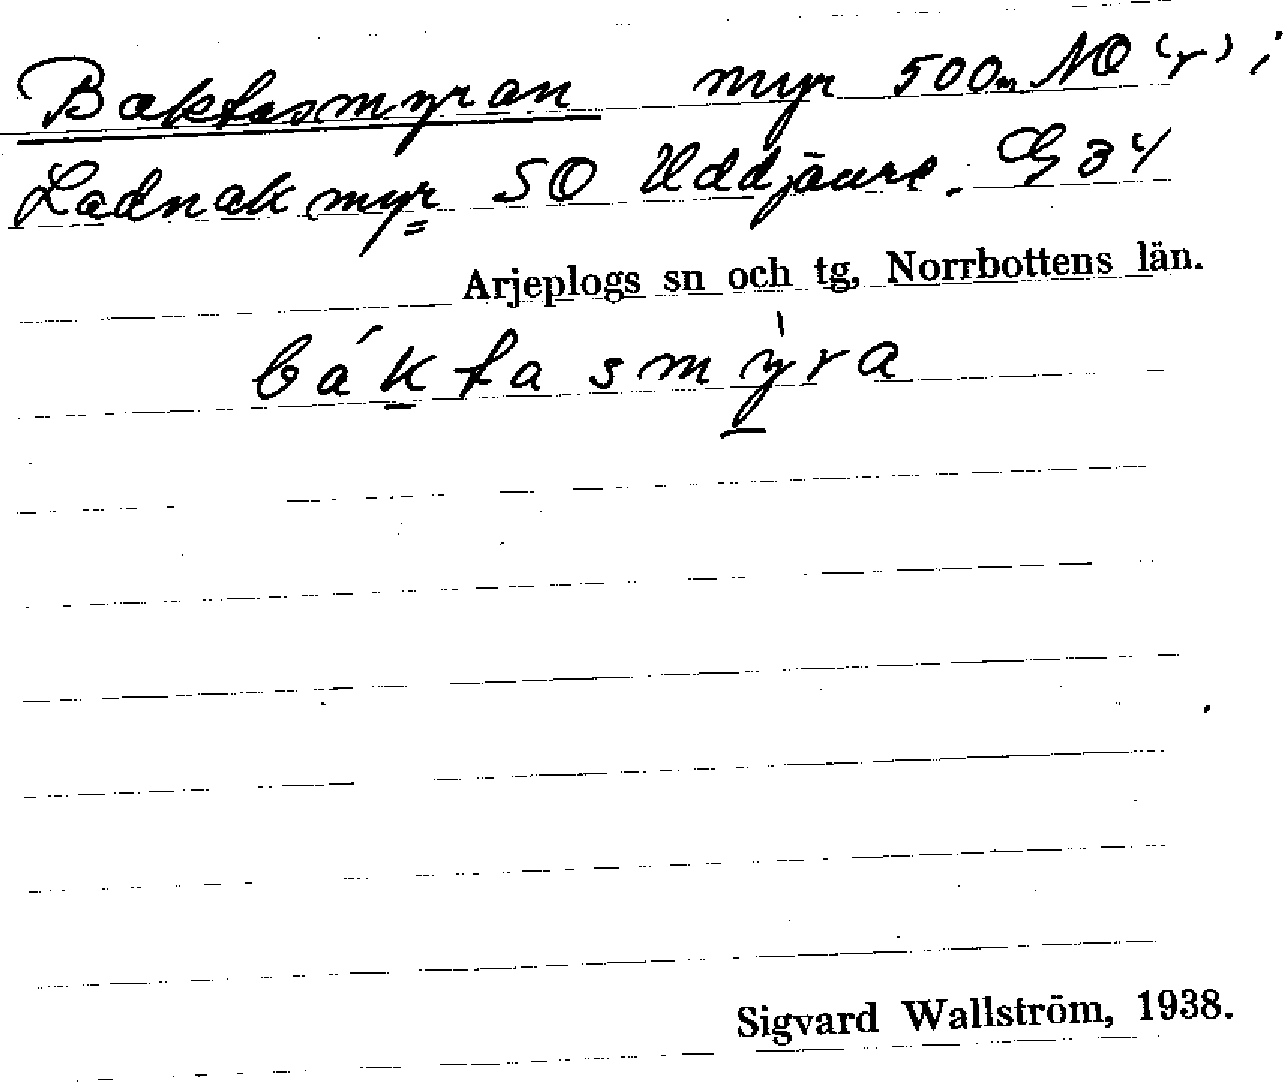 Baktasmyran myr 500m NO (r) i
Ladnakmyr SO Uddjaure. G 34
Arjeplogs sn och tg, Norrbottens län.
báktasmy̍ra
Sigvard Wallström, 1938.